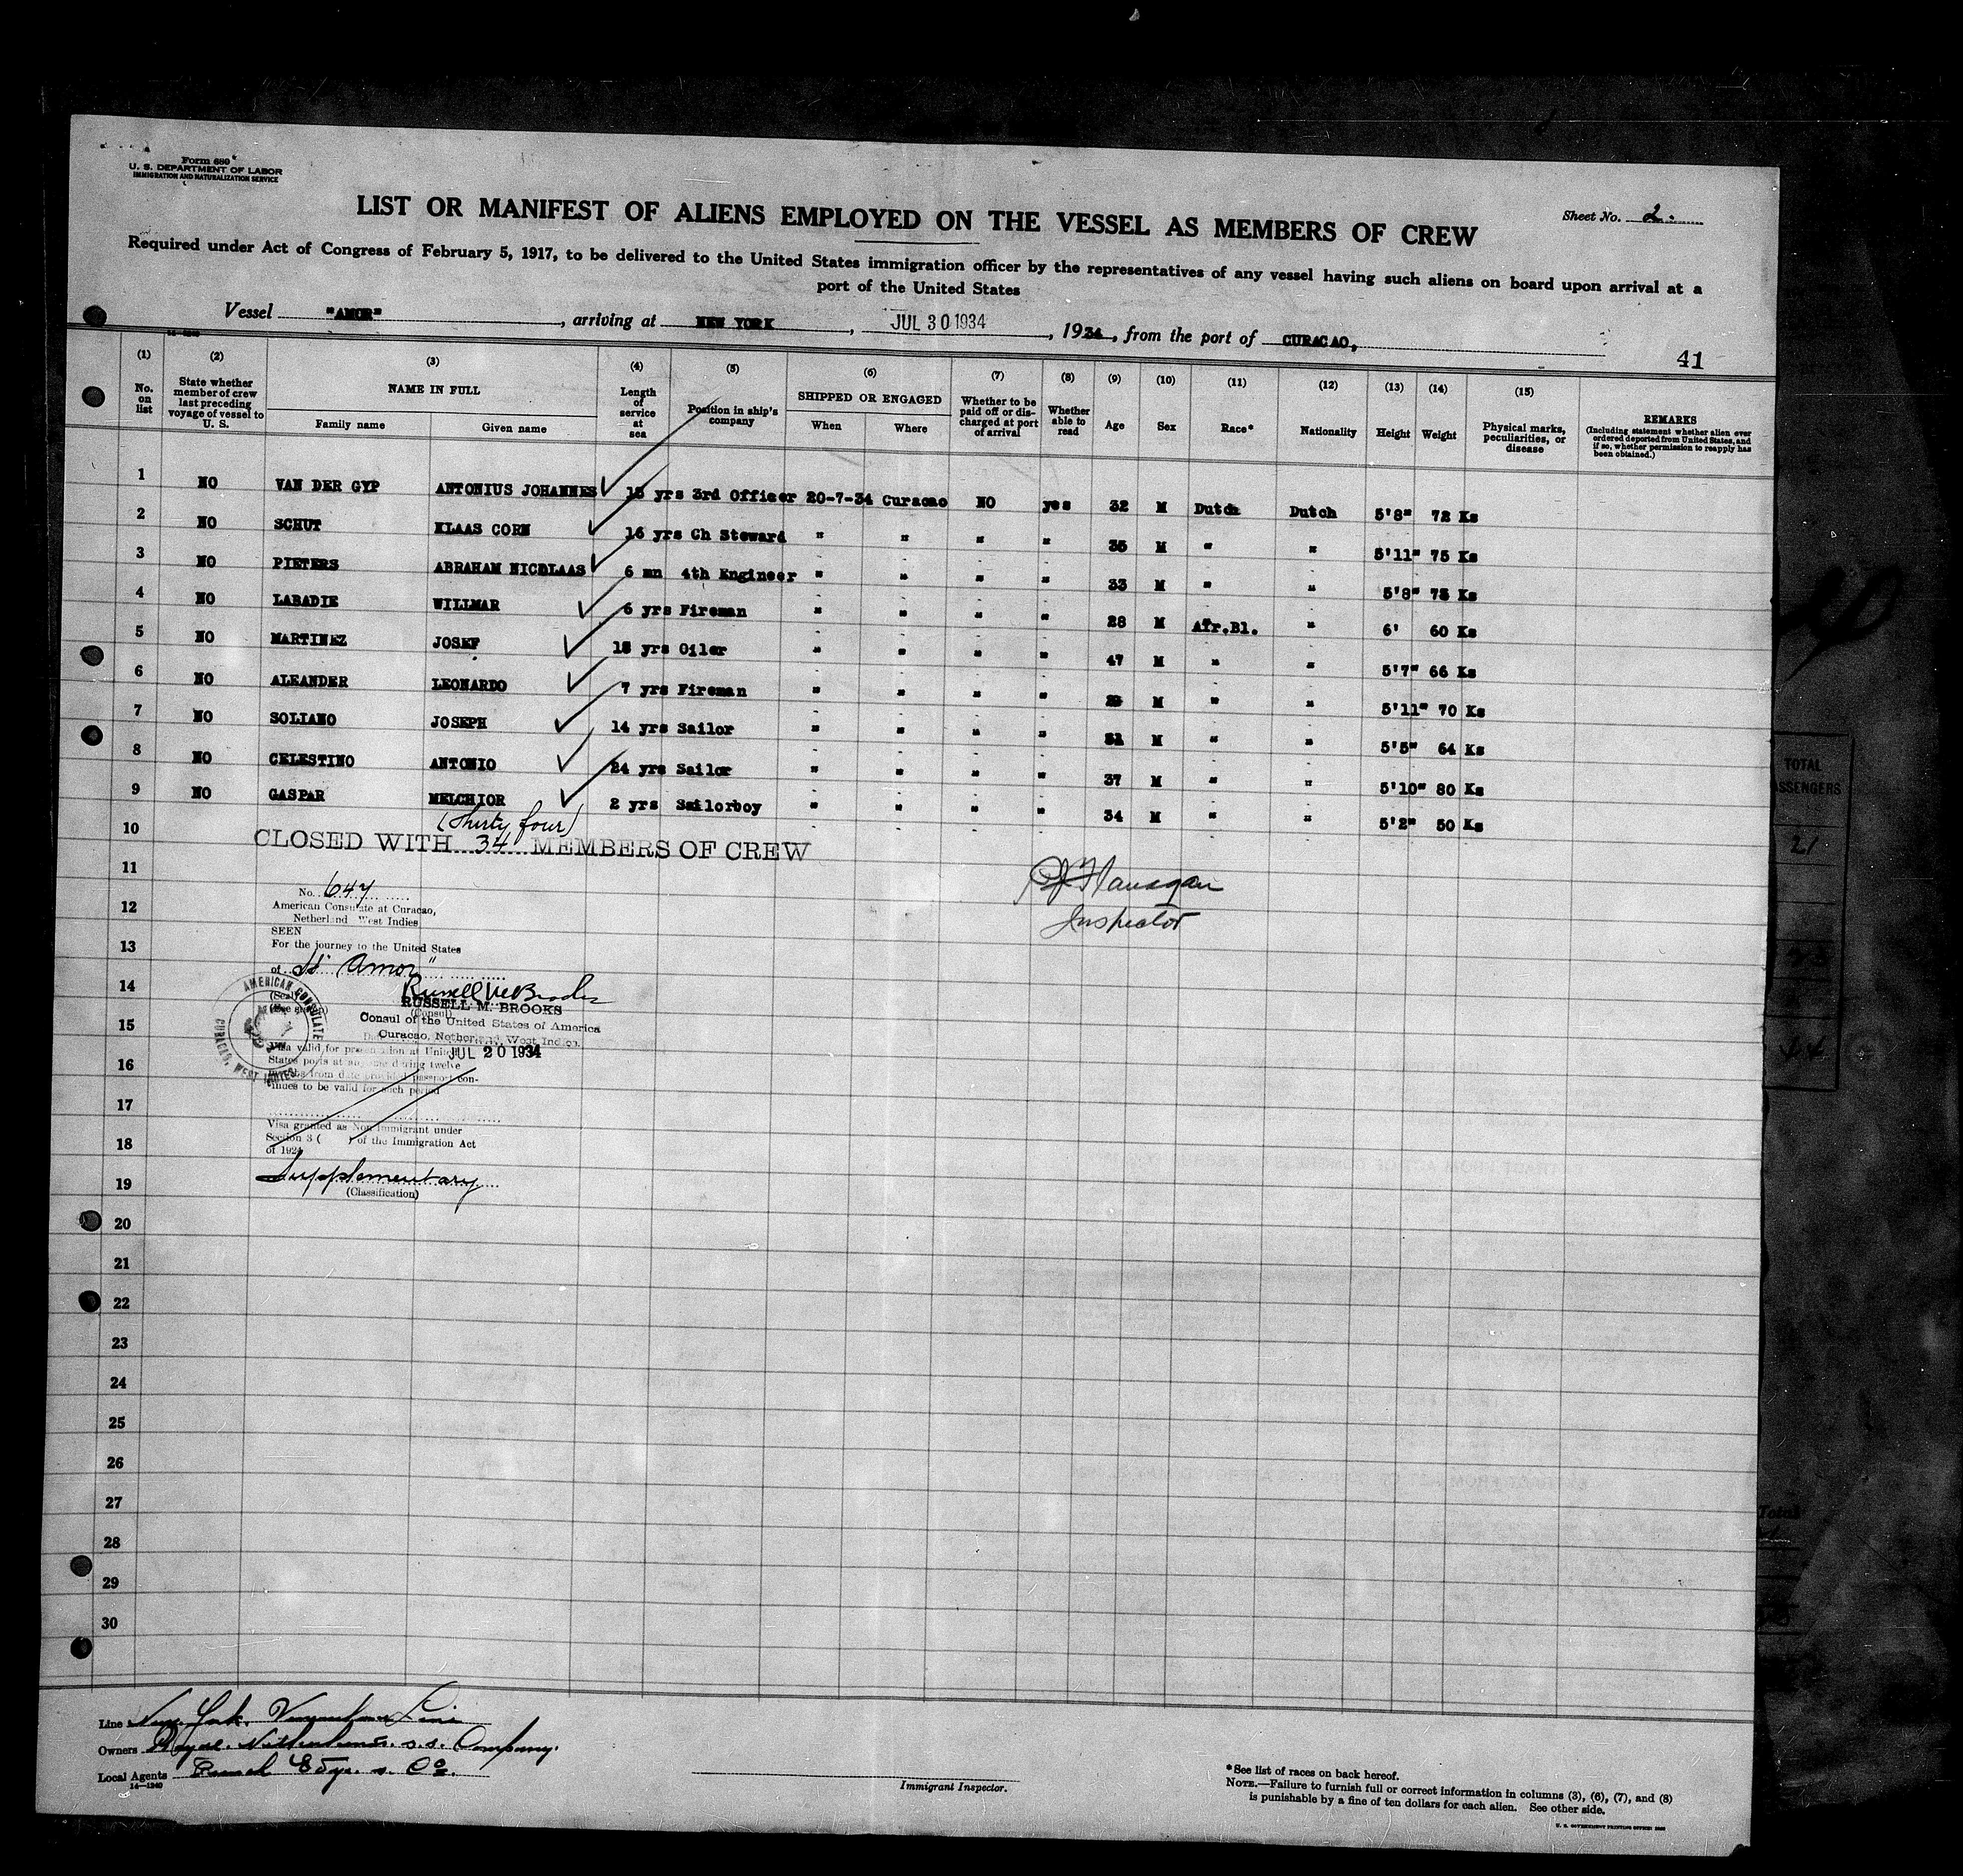 Form 680
U. S. DEPARTMENT OF LABOR
IMMIGRATION AND NATURALIZATION SERVICE
Sheet No. 2.
LIST OR MANIFEST OF ALIENS EMPLOYED ON THE VESSEL AS MEMBERS OF CREW
Required under Act of Congress of February 5, 1917, to be delivered to the United States immigration officer by the representatives of any vessel having such aliens on board upon arrival at a
port of the United States
Vessel "AMOR", arriving at NEW YORK, JUL 30 1934, 1934, from the port of CURACAO,
41
(1) (2) (3) (4) (5) (6) (7) (8) (9) (10) (11) (12) (13) (14) (15)
No. on list State whether member of crew last preceding voyage of vessel to U. S. NAME IN FULL Family name Given name Length of service at sea Position in ship's company SHIPPED OR ENGAGED When Where Whether to be paid off or discharged at port of arrival Whether able to read Age Sex Race* Nationality Height Weight Physical marks, peculiarities, or disease REMARKS (Including statement whether alien ever ordered deported from United States, and if so, whether permission to reapply has been obtained.)
1 NO VAN DER GYP ANTONIUS JOHANNES 15 yrs 3rd Officer 20-7-34 Curacao NO yes 32 M Dutch Dutch 5'8" 72 Ks
2 NO SCHUT KLAAS CORN 16 yrs Ch Steward " " " " 35 M " " 5'11" 75 Ks
3 NO PIETERS ABRAHAM NICOLAAS 6 mn 4th Engineer " " " " 33 M " " 5'8" 75 Ks
4 NO LABADIE WILLMAR 6 yrs Fireman " " " " 28 M Afr.Bl. " 6' 60 Ks
5 NO MARTINEZ JOSEF 18 yrs Oiler " " " " 47 M " " 5'7" 66 Ks
6 NO ALEANDER LEONARDO 7 yrs Fireman " " " " M " " 5'11" 70 Ks
7 NO SOLIANO JOSEPH 14 yrs Sailor " " " " 31 M " " 5'5" 64 Ks
8 NO CELESTINO ANTONIO 24 yrs Sailor " " " " 37 M " " 5'10" 80 Ks
9 NO GASPAR MELCHIOR 2 yrs Sailorboy " " " " 34 M " " 5'2" 50 Ks
(thirty four)
10 CLOSED WITH 34 MEMBERS OF CREW
11
Flanagan
Inspector
No. 647
12 American Consulate at Curacao,
Netherland West Indies
SEEN
13 For the journey to the United States
of SS "Amor"
14
(Seal)
RUSSELL M. BROOKS
(Consul)
15 Consul of the United States of America
Curacao, Netherland West Indies
AMERICAN CONSULATE
CURACAO, WEST INDIES
Visa valid for presentation at United
JUL 20 1934
16 States ports at any time during twelve
months from date provided passport con-
tinues to be valid for such period
17
Visa granted as Non immigrant under
18 Section 3 ( ) of the Immigration Act
of 1924
19 Supplementary
(Classification)
20
21
22
23
24
25
26
27
28
29
30
Line New York Venezuelan Line
Owners Royal Netherlands s.s. Company.
Local Agents
14—1240
Immigrant Inspector.
*See list of races on back hereof.
NOTE.—Failure to furnish full or correct information in columns (3), (6), (7), and (8)
is punishable by a fine of ten dollars for each alien. See other side.
U. S. GOVERNMENT PRINTING OFFICE
TOTAL
21
Total